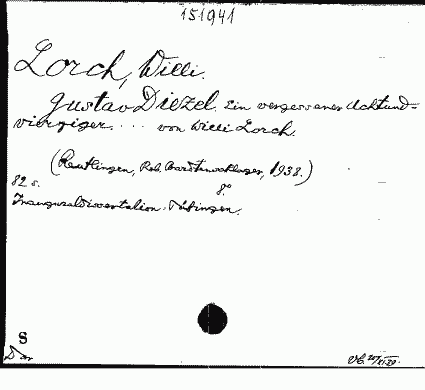 151941
Lorch, Willi.
Gustav Diezel. Ein vergessener Achtund=
vierziger. ... von Willi Lorch.
(Reutlingen, Rob. Bardtenschlager, 1938.)
82 S. 8°
Inauguraldissertation. Tübingen.
S